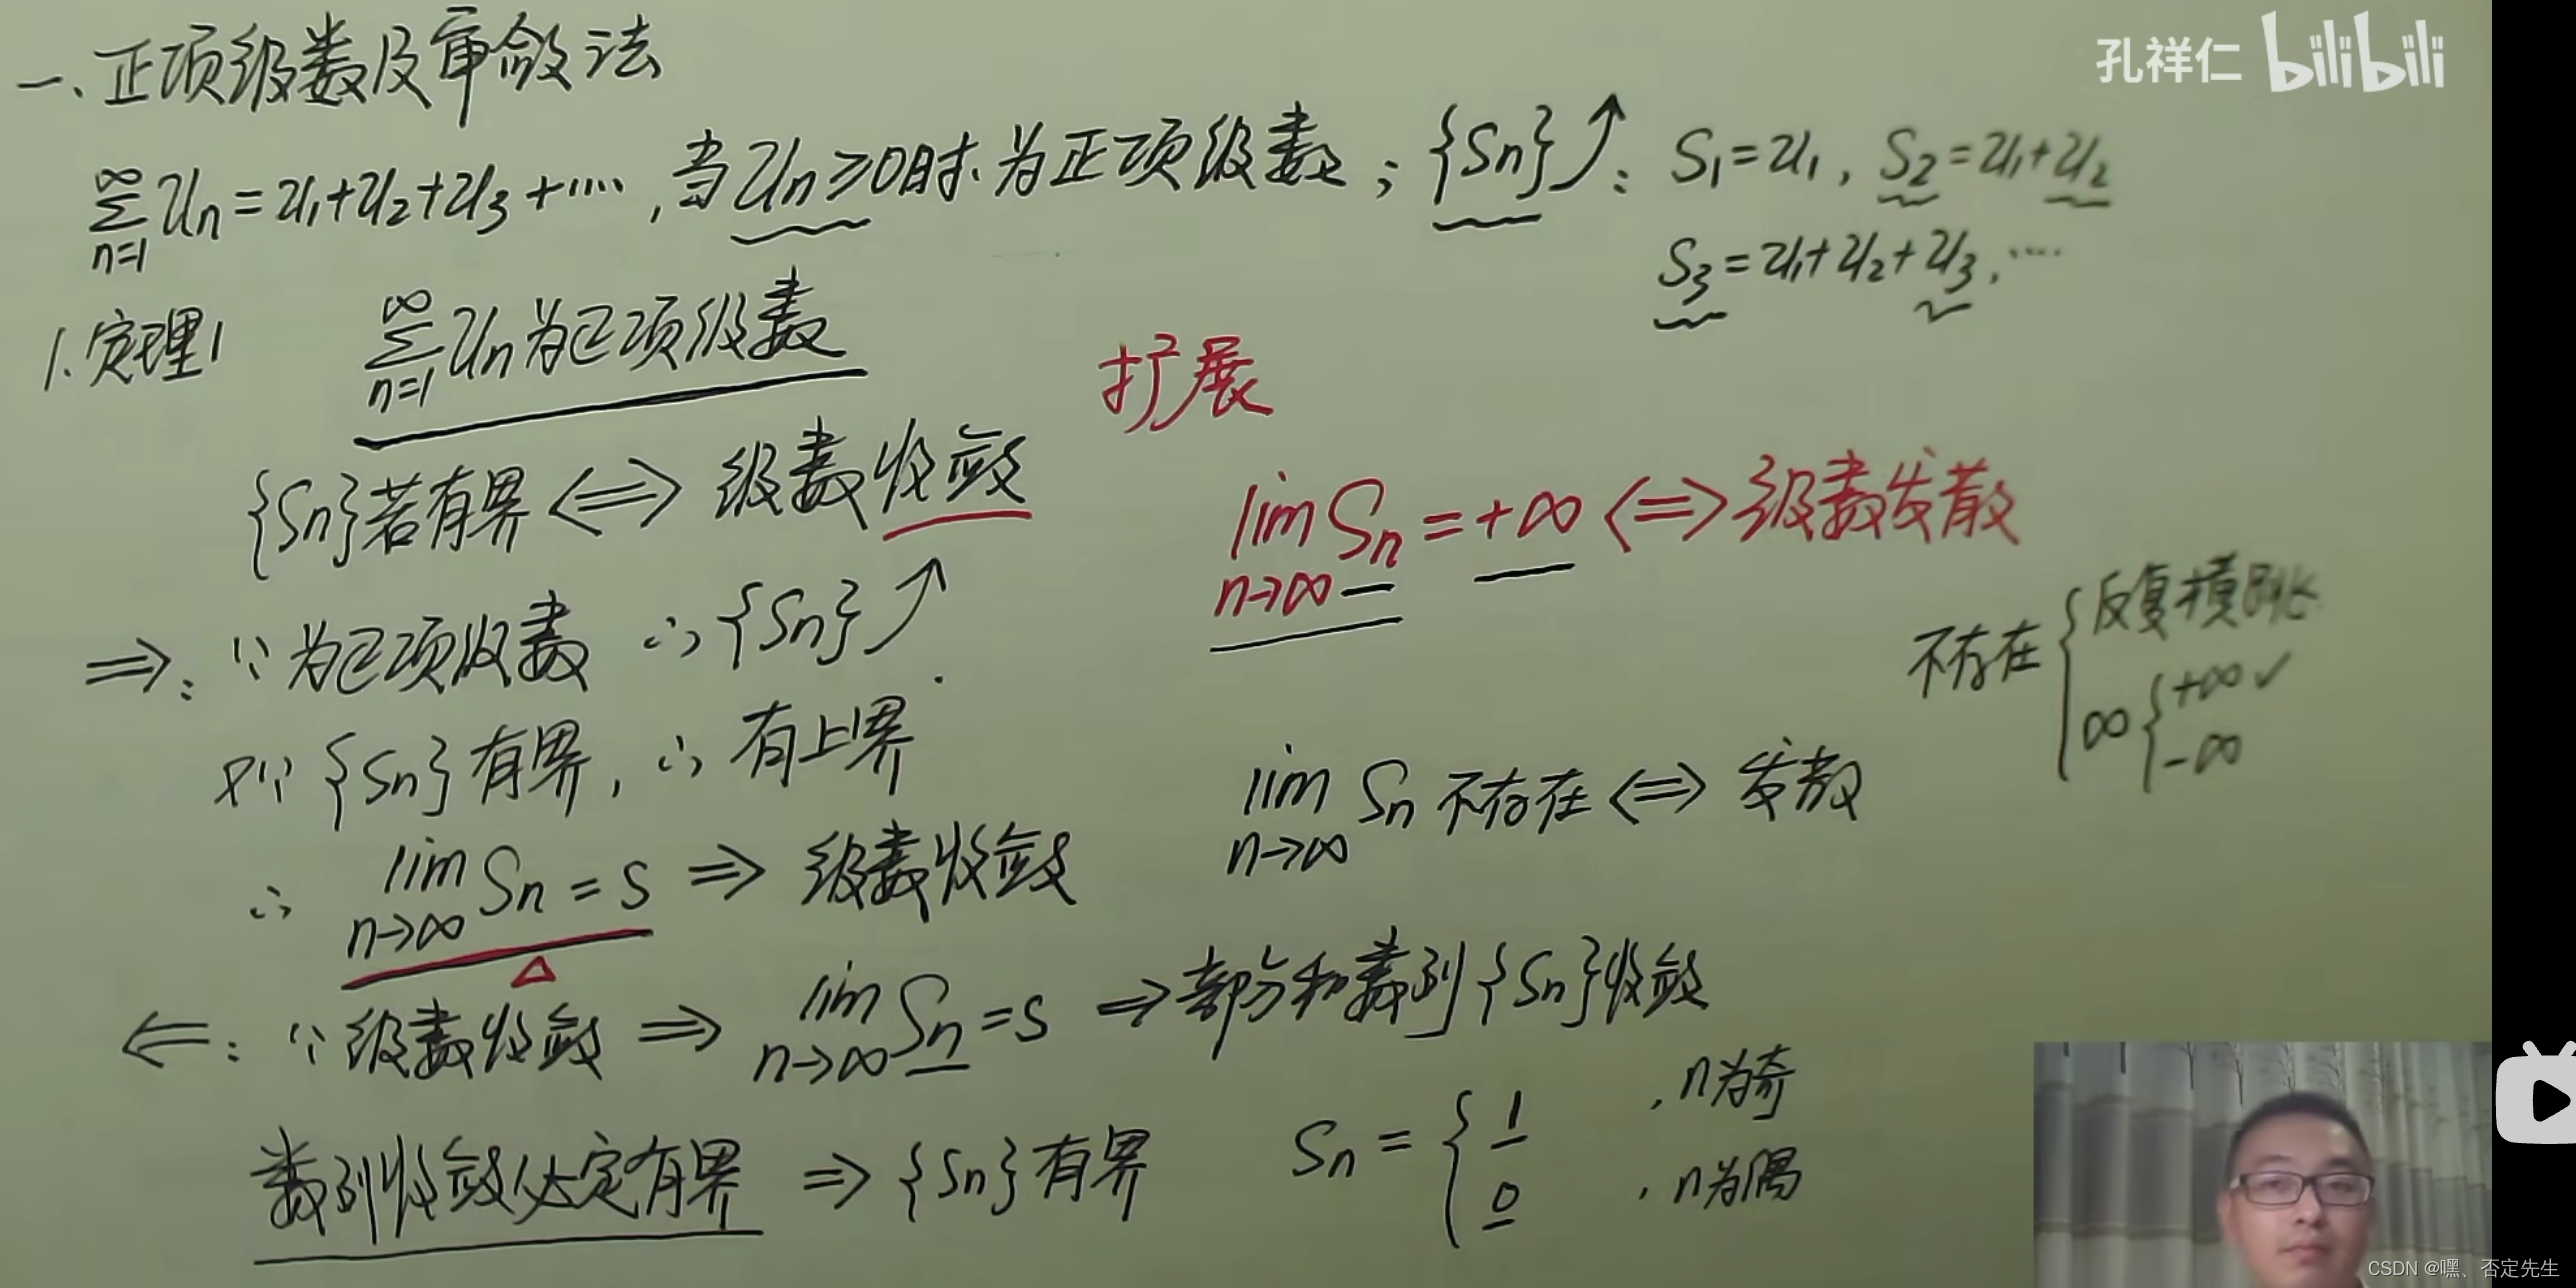 一、正项级数及审敛法
孔祥仁 bilibili
∑_{n=1}^{∞} Un = U1+U2+U3+···· , 当Un≥0时.为正项级数；{Sn}↗：S1=U1，S2=U1+U2
S3=U1+U2+U3，····
1.定理1 ∑_{n=1}^{∞} Un为正项级数
扩展
{Sn}若有界<=>级数收敛
lim_{n→∞} Sn=+∞<=>级数发散
=>: ∵为正项级数 ∴{Sn}↗
不存在{反复横跳 ∞{+∞✓ -∞
又∵{Sn}有界，∴有上界
lim_{n→∞} Sn不存在<=>发散
∴ lim_{n→∞} Sn=S => 级数收敛
△
<=: ∵级数收敛 => lim_{n→∞} Sn=S =>部分和数列{Sn}收敛
数列收敛必定有界 => {Sn}有界
Sn={1 ，n为奇
0 ，n为偶
CSDN @嘿、否定先生